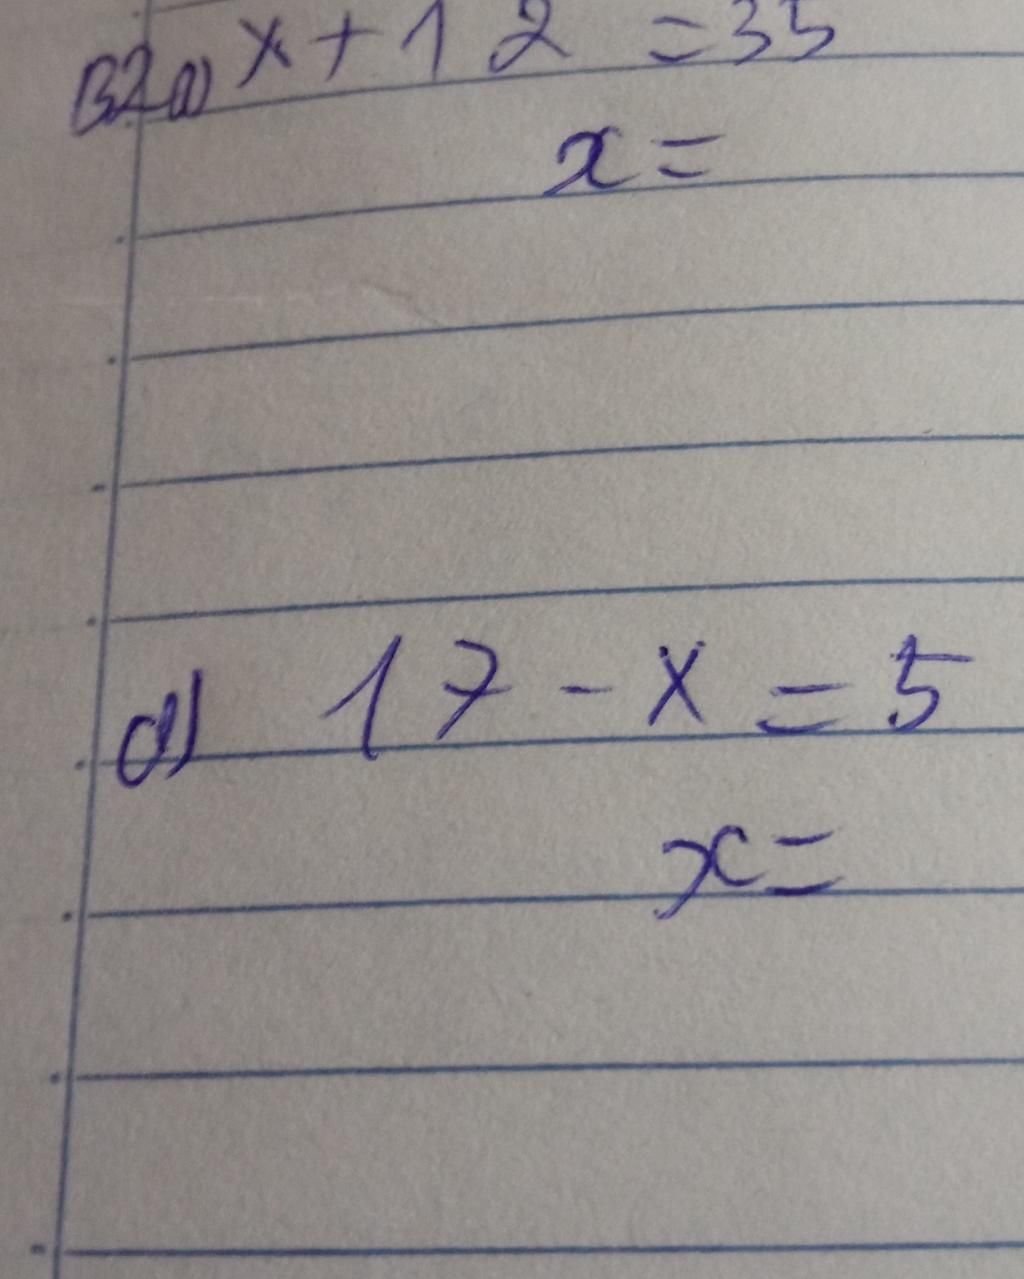 B2a) x + 12 = 35
x =
d) 17 - x = 5
x =